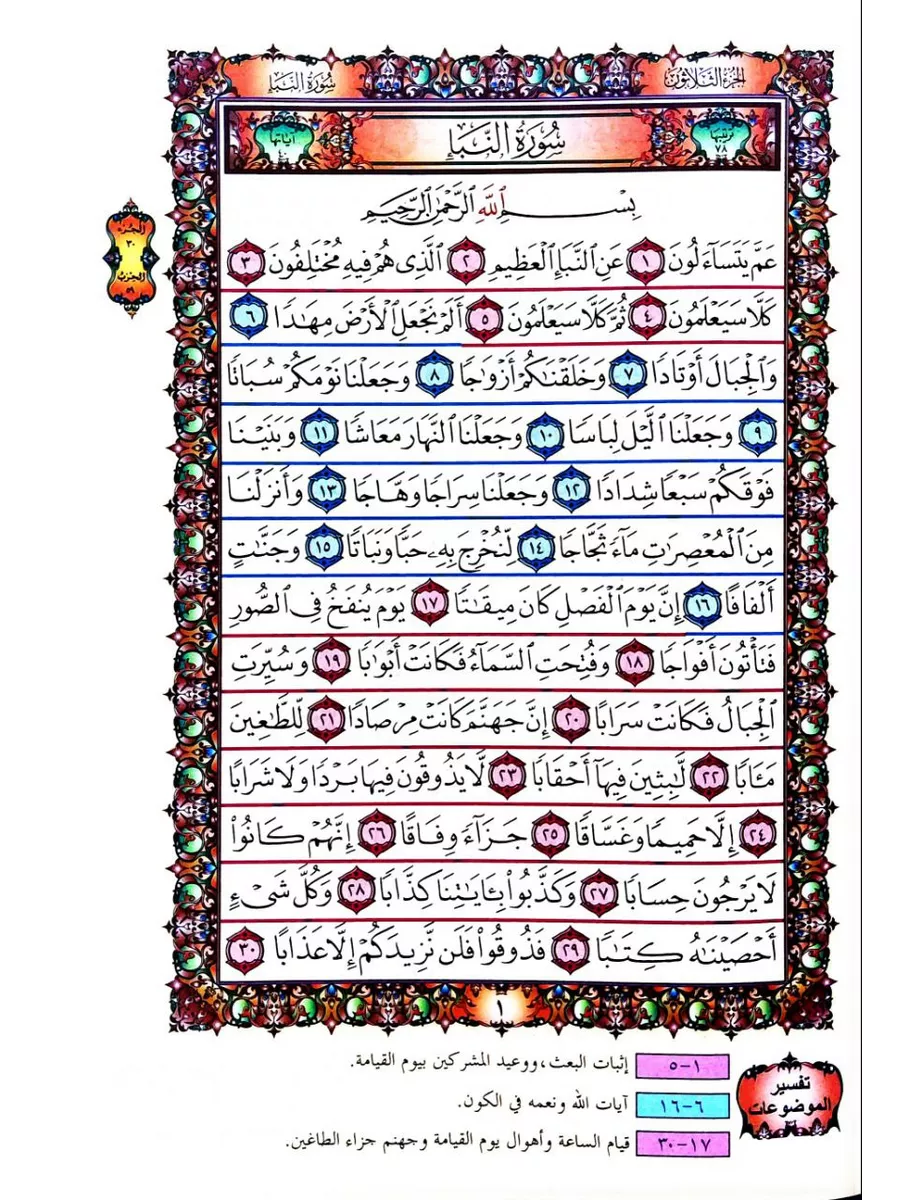 الجزء الثلاثون
سورة النبإ
ترتيبها
٧٨
سُورَةُ النَّبَإِ
آياتها
بِسْمِ ٱللَّهِ ٱلرَّحْمَٰنِ ٱلرَّحِيمِ
الجزء
٣٠
الحزب
٥٩
عَمَّ يَتَسَآءَلُونَ ١ عَنِ ٱلنَّبَإِ ٱلْعَظِيمِ ٢ ٱلَّذِى هُمْ فِيهِ مُخْتَلِفُونَ ٣
كَلَّا سَيَعْلَمُونَ ٤ ثُمَّ كَلَّا سَيَعْلَمُونَ ٥ أَلَمْ نَجْعَلِ ٱلْأَرْضَ مِهَٰدًا ٦
وَٱلْجِبَالَ أَوْتَادًا ٧ وَخَلَقْنَٰكُمْ أَزْوَٰجًا ٨ وَجَعَلْنَا نَوْمَكُمْ سُبَاتًا
٩ وَجَعَلْنَا ٱلَّيْلَ لِبَاسًا ١٠ وَجَعَلْنَا ٱلنَّهَارَ مَعَاشًا ١١ وَبَنَيْنَا
فَوْقَكُمْ سَبْعًا شِدَادًا ١٢ وَجَعَلْنَا سِرَاجًا وَهَّاجًا ١٣ وَأَنزَلْنَا
مِنَ ٱلْمُعْصِرَٰتِ مَآءً ثَجَّاجًا ١٤ لِّنُخْرِجَ بِهِۦ حَبًّا وَنَبَاتًا ١٥ وَجَنَّٰتٍ
أَلْفَافًا ١٦ إِنَّ يَوْمَ ٱلْفَصْلِ كَانَ مِيقَٰتًا ١٧ يَوْمَ يُنفَخُ فِى ٱلصُّورِ
فَتَأْتُونَ أَفْوَاجًا ١٨ وَفُتِحَتِ ٱلسَّمَآءُ فَكَانَتْ أَبْوَٰبًا ١٩ وَسُيِّرَتِ
ٱلْجِبَالُ فَكَانَتْ سَرَابًا ٢٠ إِنَّ جَهَنَّمَ كَانَتْ مِرْصَادًا ٢١ لِّلطَّٰغِينَ
مَـَٔابًا ٢٢ لَّٰبِثِينَ فِيهَآ أَحْقَابًا ٢٣ لَّا يَذُوقُونَ فِيهَا بَرْدًا وَلَا شَرَابًا
٢٤ إِلَّا حَمِيمًا وَغَسَّاقًا ٢٥ جَزَآءً وِفَاقًا ٢٦ إِنَّهُمْ كَانُوا۟
لَا يَرْجُونَ حِسَابًا ٢٧ وَكَذَّبُوا۟ بِـَٔايَٰتِنَا كِذَّابًا ٢٨ وَكُلَّ شَىْءٍ
أَحْصَيْنَٰهُ كِتَٰبًا ٢٩ فَذُوقُوا۟ فَلَن نَّزِيدَكُمْ إِلَّا عَذَابًا ٣٠
١
تفسير
الموضوعات
١-٥ إثبات البعث، ووعيد المشركين بيوم القيامة.
٦-١٦ آيات الله ونعمه في الكون.
١٧-٣٠ قيام الساعة وأهوال يوم القيامة وجهنم جزاء الطاغين.